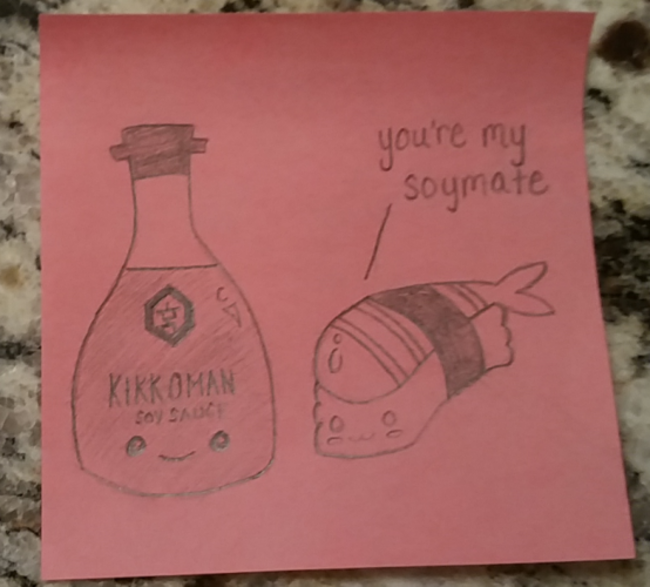 you're my
soymate
KIKKOMAN
SOY SAUCE